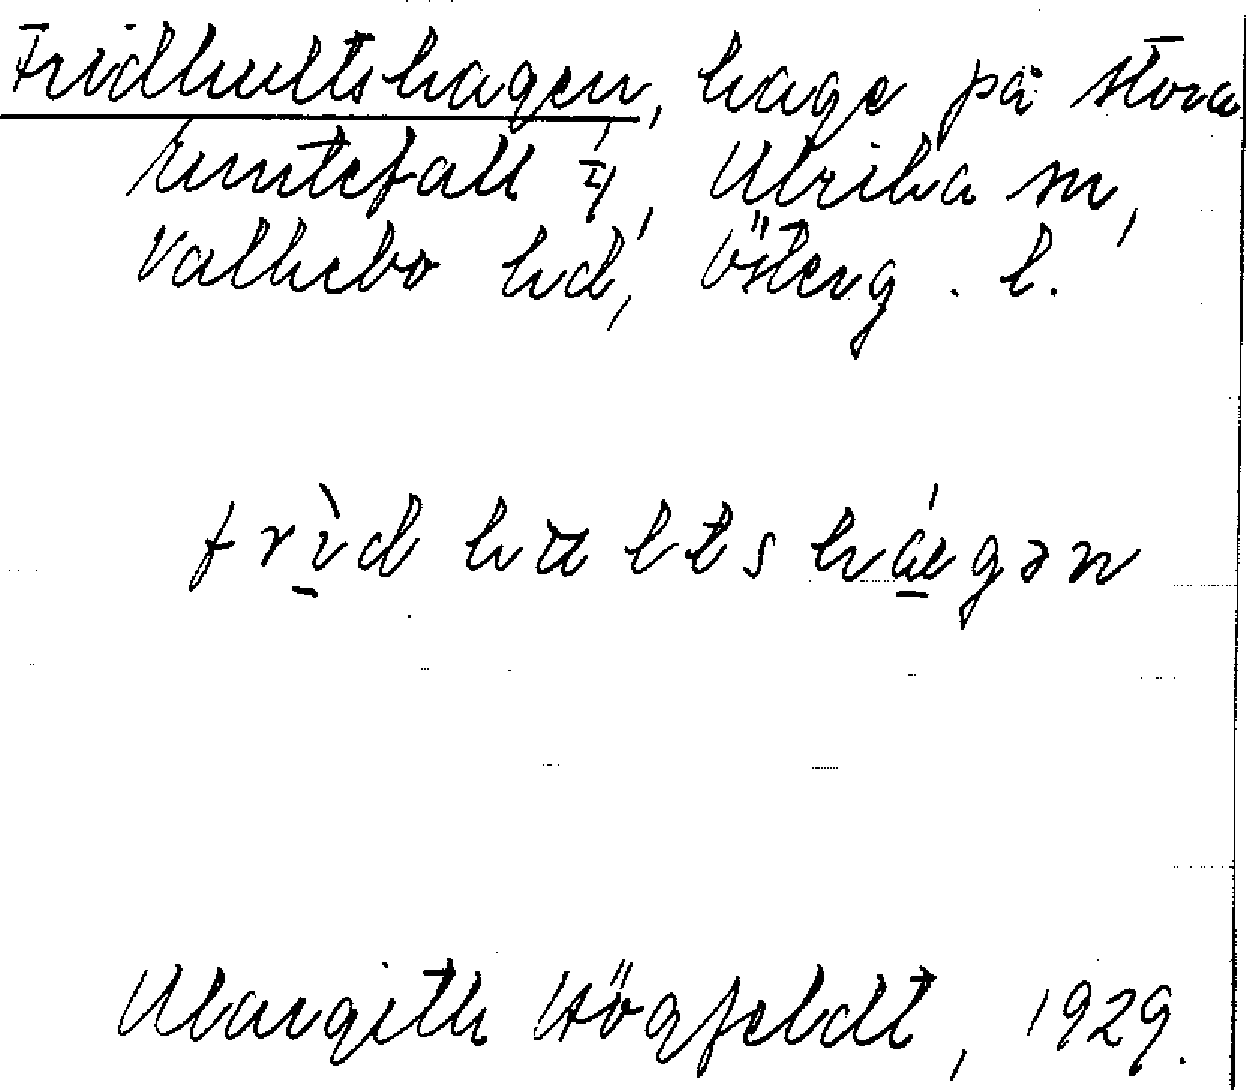 Fridhultshagen, hage på Stora
Kuntefall 1/4, Ulrika sn,
Vallebo hd, Österg. l.
frì̱d hultshá̱egən
Margith Högfeldt, 1929.